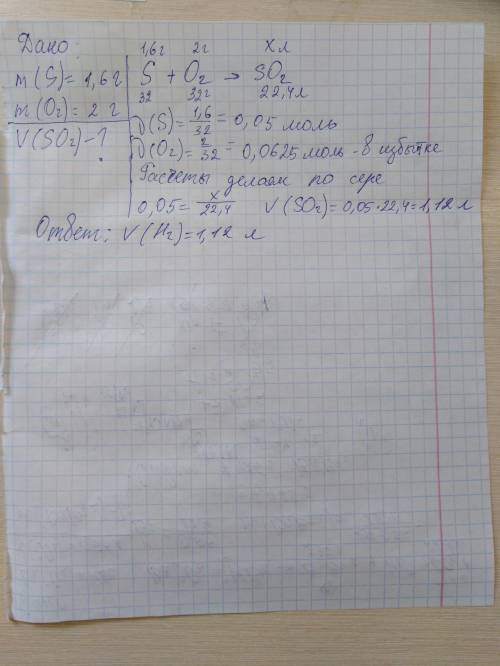 Дано:
m(S)=1,6г
m(O₂)=2 г
V(SO₂)-?
1,6г 2г x л
S + O₂ → SO₂
32 32г 22,4л
ν(S)=1,6/32=0,05 моль
ν(O₂)=2/32=0,0625 моль - в избытке
Расчеты делаем по сере
0,05=x/22,4 V(SO₂)=0,05·22,4=1,12 л
Ответ: V(H₂)=1,12 л